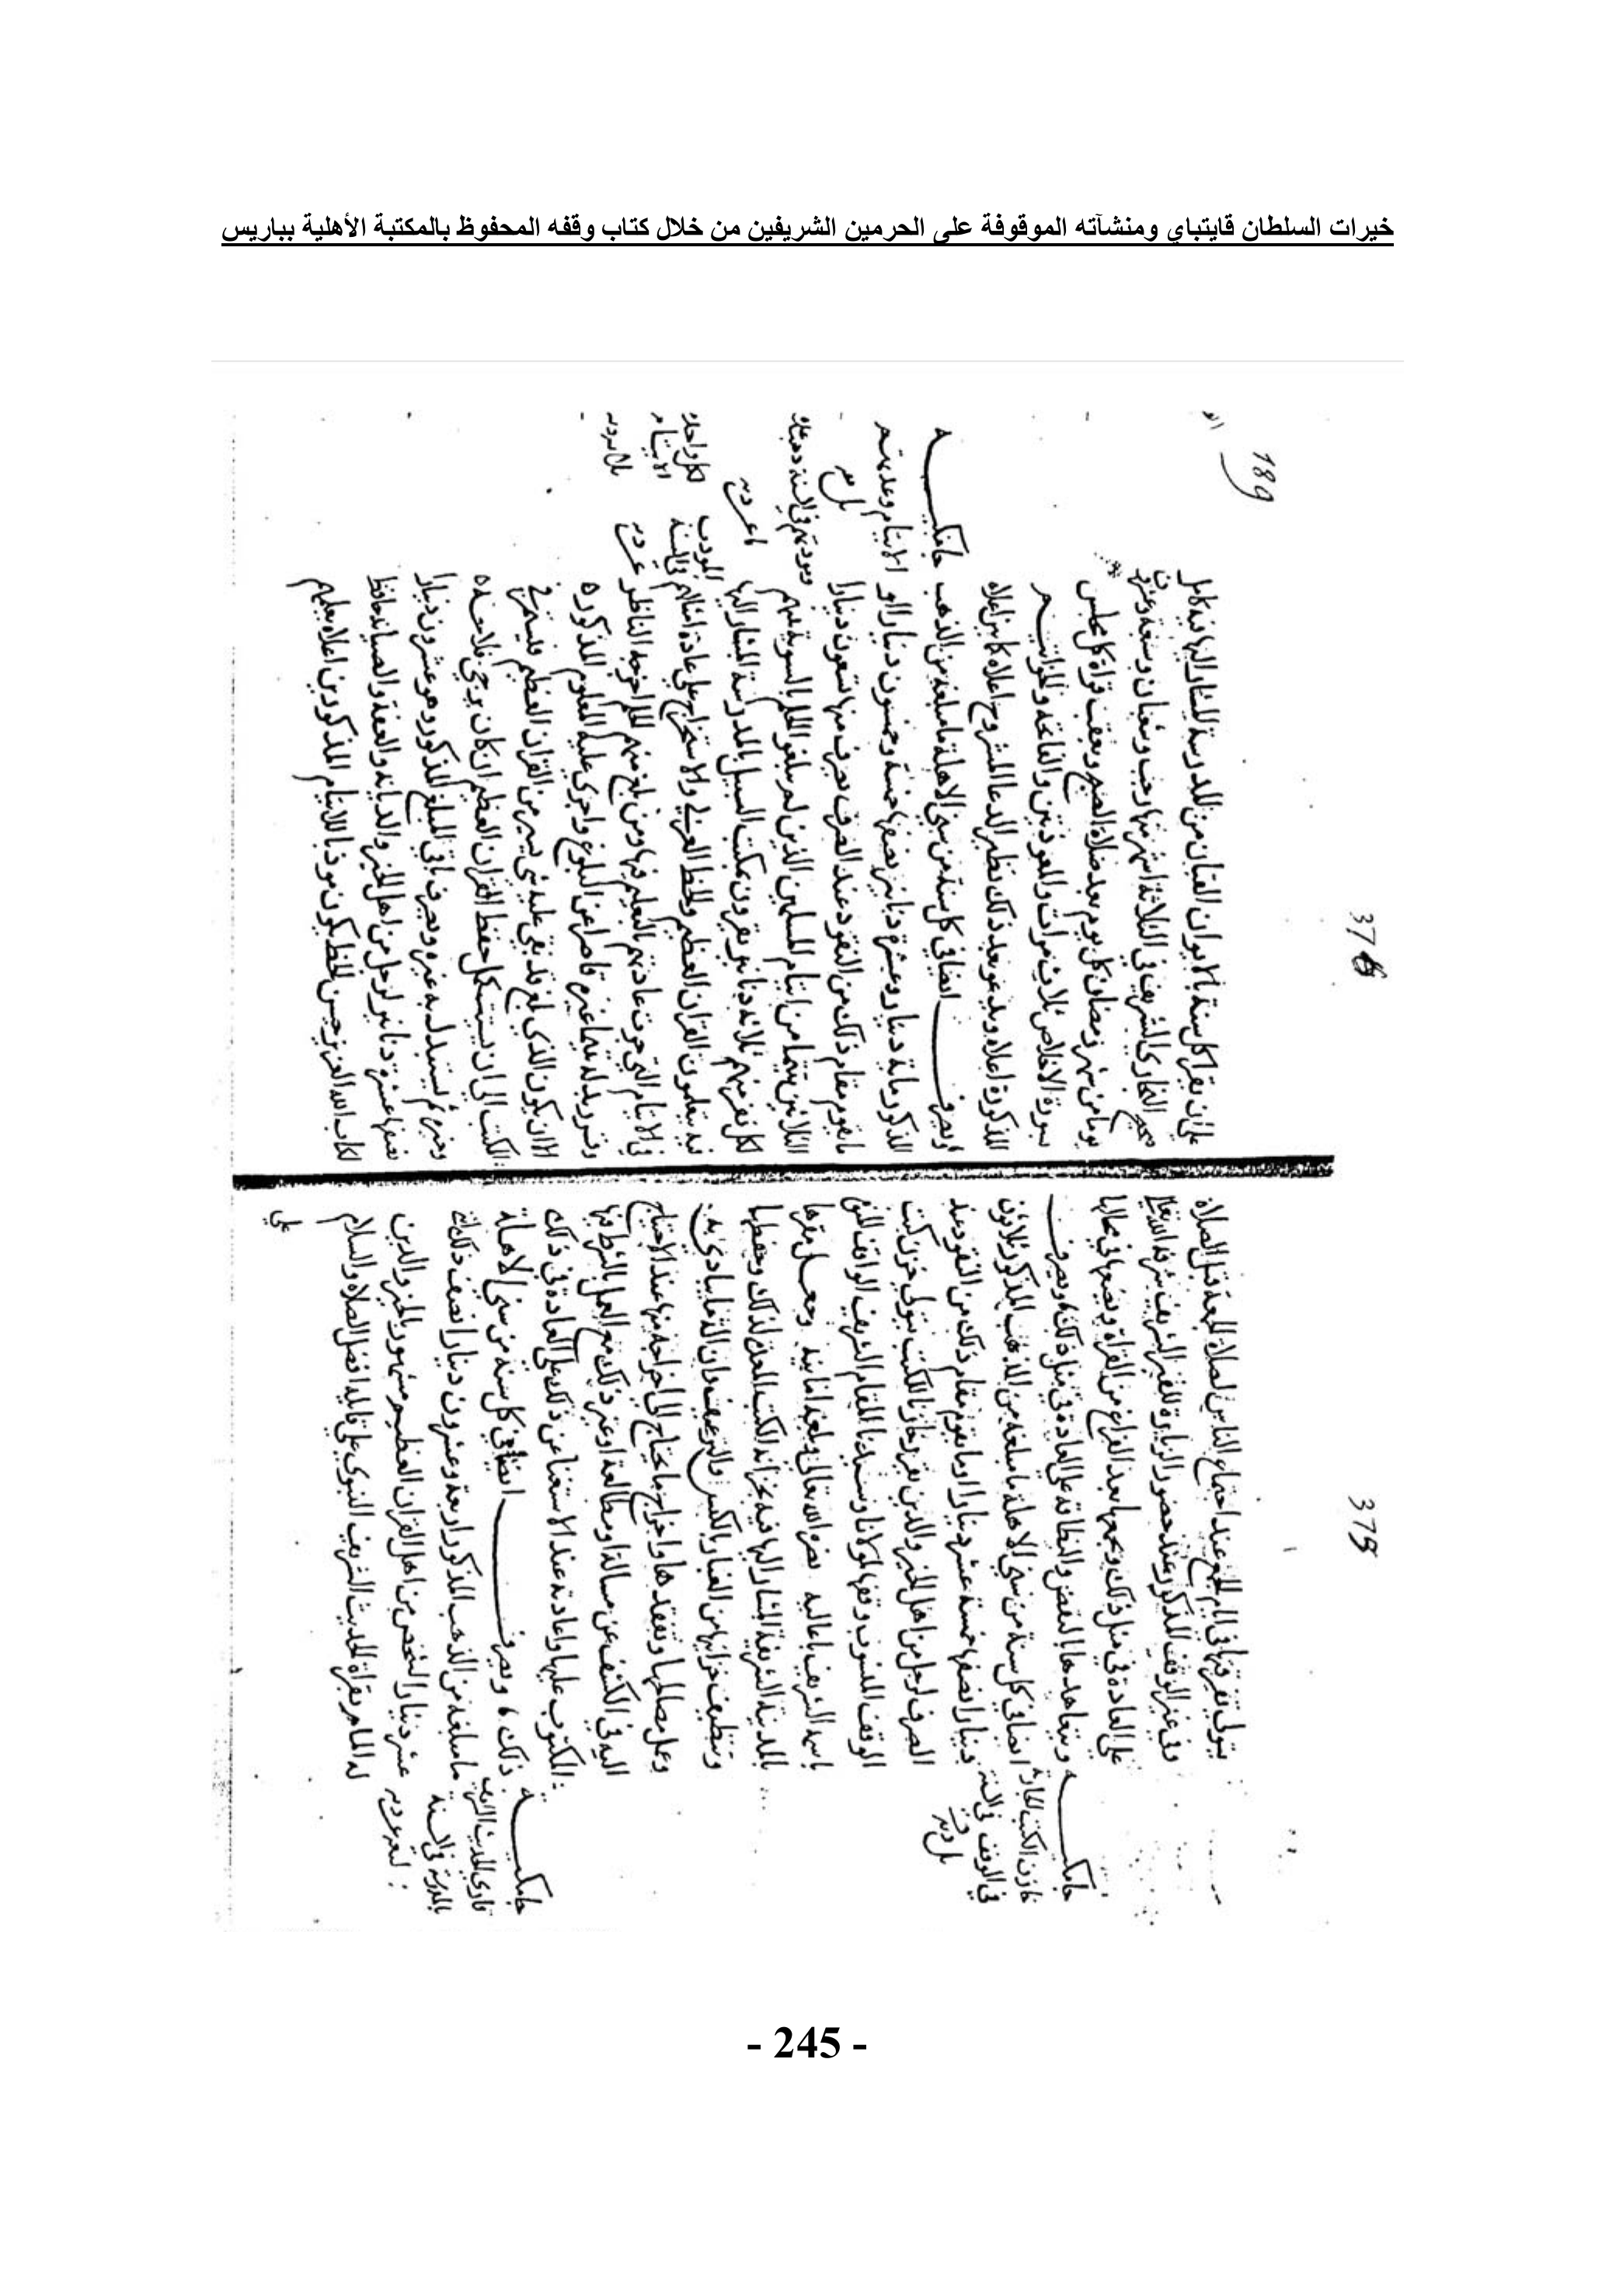 خيرات السلطان قايتباي ومنشآته الموقوفة على الحرمين الشريفين من خلال كتاب وقفه المحفوظ بالمكتبة الأهلية بباريس
375
يتولى تفرقتها في ايام الجمع عند اجتماع الناس لصلاة الجمعة قبل الصلاة
وفي غير الوقت المذكور عند حضور الزيارة للقبر الشريف شرفه الله تعالى
على العادة في مثل ذلك ويجمعها بعد الفراغ من القراة ويضعها في محالها
ويتعاهدها بالنفض والنظافة على العادة في مثل ذلك ويصرف
ايضا في كل سنة من سني الاهلة ما مبلغه من الذهب المذكور ثلاثون
دينارا نصفها خمسة عشر دينارا او ما يقوم مقام ذلك من النقود عند
الصرف لرجل من اهل الخير والدين يقرر خازنا للكتب يتولى خزن كتب
الوقف المنسوب وقفها لمولانا وسيدنا المقام الشريف الواقف المنوه
باسمه الشريف باعاليه نصره الله تعالى وبلغه امانيه وجعل مقرها
بالمدينة الشريفة المشار اليها فيه بخزانة الكتب المعدة لذلك وحفظها
وتنظيف خزانتها من الغبار بالكنس والترتيب وان
وعمل مصالحها وتفقدها واخراج ما يحتاج الى اخراجه منها عند الاحتياج
اليه في الكشف عن مسالة او مطالعة او غير ذلك مع العمل بالشرط فيها
المكتوب عليها واعادته عند الاستغنا عن ذلك على العادة في ذلك
ذلك ويصرف ايضا في كل سنة من سني الاهلة
ما مبلغه من الذهب المذكور اربعة وعشرون دينارا نصف ذلك اثنا
عشر دينارا لشخص من اهل القران العظيم مشهور بالخير والدين
له المام بقراة الحديث الشريف النبوي على قايله افضل الصلاة والسلام
على
جامكية
خازن الكتب
في الوقف في السنة
جامكية
قاري الحديث الشريف
بالمدرسة في السنة
376
189
على ان يقرا كل سنة بالايوان القبلي من المدرسة المشار اليها فيه كامل
صحيح البخاري الشريف في الثلاثة اشهر منها رجب وشعبان وسبعة وعشرين
يوما من شهر رمضان كل يوم بعد صلاة الصبح وبعقب قراة كل مجلس
سورة الاخلاص ثلاث مرات والمعوذتين والفاتحة
المذكورة اعلاه ويدعو بعد ذلك نظير الدعا المشروح اعلاه كما بين اعلاه
ويصرف ايضا في كل سنة من سني الاهلة ما مبلغه من الذهب
المذكور ماية دينار وعشرة دنانير نصفها خمسة وخمسون دينارا او
ما يقوم مقام ذلك من النقود عند الصرف يصرف منها تسعون دينارا
لثلاثين يتيما من ايتام المسلمين الذين لم يبلغوا الحلم بالسوية بينهم
لكل نفر منهم ثلاثة دنانير يقرون بمكتب السبيل بالمدرسة المشار اليها
فيه يتعلمون القران العظيم والخط العربي والاستخراج على عادة امثالهم
في الايام التي جرت عادتهم بالتعليم فيها ومن بلغ منهم الحلم اخرجه الناظر
وقرر بدله يتيما غيره قاصرا عن البلوغ واجرى عليه المعلوم المذكور
الا ان يكون الذي بلغ قد بقي عليه شي يسير من القران العظيم فيستمر في
المكتب الى ان يستكمل حفظ القران العظيم ان كان يرجى فلاحه
وخيره ثم يستبدل به غيره ويصرف باقي المبلغ المذكور وهو عشرون دينارا
نصفها عشرة دنانير لرجل من اهل الخير والديانة والعفة والصيانة حافظ
لكتاب الله العزيز حسن الخط يكون مودبا للايتام المذكورين اعلاه يعلمهم
جامكية
الايتام وعدتهم
ومودبهم في السنة
لكل واحد
الايتام
المودب
في السنة
- 245 -